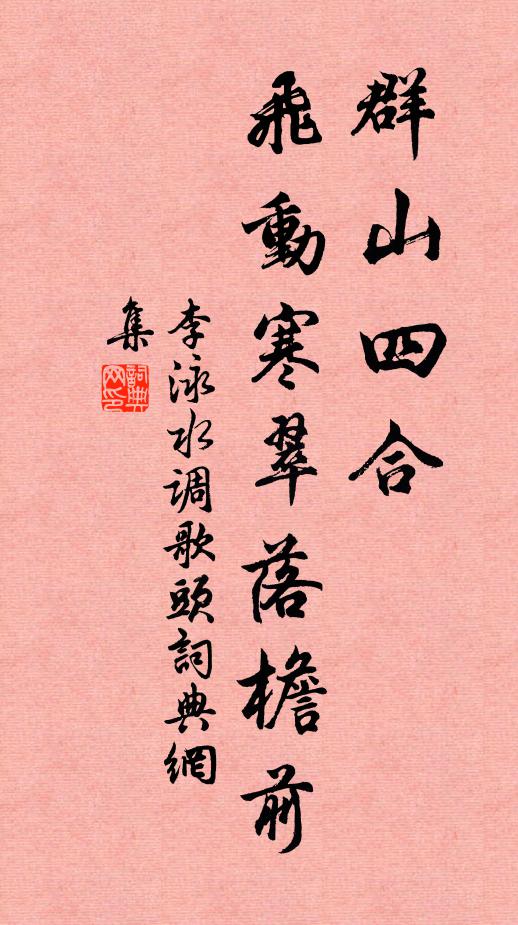 群山四合
飛動寒翠落檐前
李泳水调歌頭詞典網
集
詞典
网印